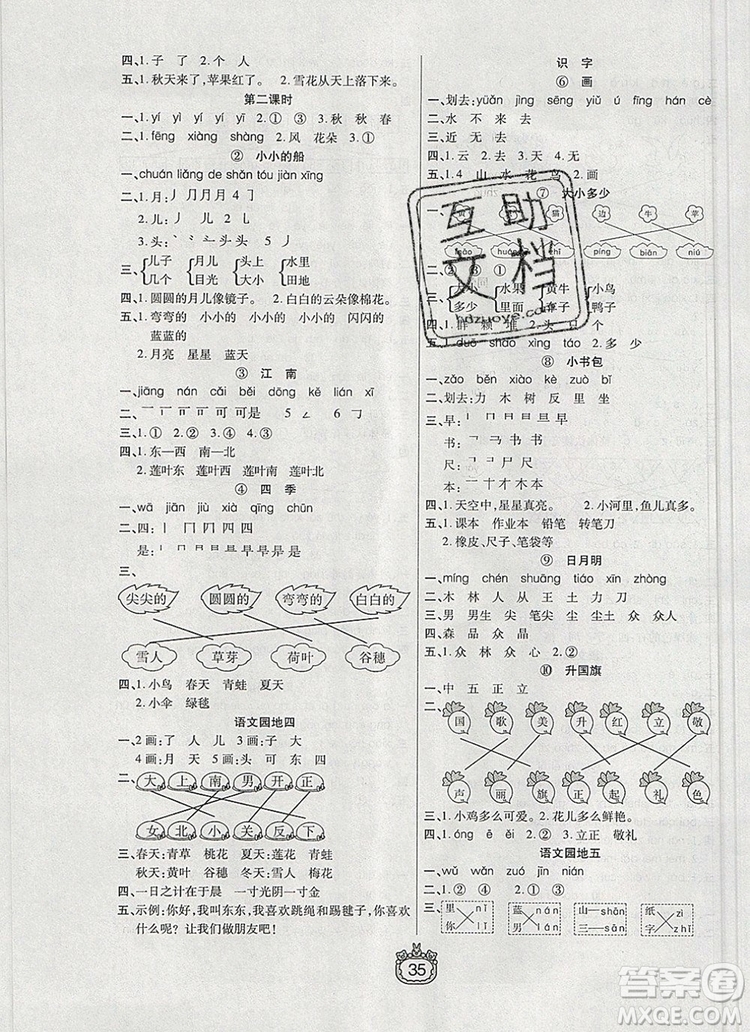 四、1.子 了 2.个 人
五、1.秋天来了,苹果红了。 2.雪花从天上落下来。
第二课时
一、1.yí yì yí yì 2.① ③ 3.秋 秋 春
二、1.fēng xiàng shàng 2.风 花朵 3.① ②
② 小小的船
一、chuán liǎng de shǎn tóu jiàn xīng
二、1.月:丿 ⺆ 月 月 4 ㇆
2.儿:丿 儿 2 乚
3.头:
三、儿子 儿子 头上 水里
几个 目光 大小 田地
四、1.圆圆的月儿像镜子。 2.白白的云朵像棉花。
五、1.弯弯的 小小的 小小的 闪闪的
蓝蓝的
2.月亮 星星 蓝天
③ 江 南
一、jiāng nán cǎi běi dōng kě lián xī
三、1.① 2.② 3.①
四、1.东—西 南—北
2.莲叶东 莲叶西 莲叶南 莲叶北
④ 四 季
一、wā xiǎ jiù xià qīng chūn
二、四:丨 冂
是:
三、
尖尖的 圆圆的 弯弯的 白白的
雪人 草芽 荷叶 谷穗
四、1.小鸟 春天 青蛙 夏天
2.小伞 绿毯
语文园地四
一、2画:了 人 儿 3画:子 大
4画:月 天 5画:头 可 东 四
二、大 上 南 男 开 正
女 北 小 关 反 下
三、春天:青草 桃花 夏天:莲花 青蛙
秋天:黄叶 谷穗 冬天:雪人 梅花
四、一日之计在于晨 一寸光阴一寸金
五、示例:你好,我叫东东,我喜欢跳绳和踢毽子,你喜欢
什么呢?让我们做朋友吧!
识 字
⑥ 画
一、划去:yuǎn jìng sēng yiǔ ú fīng hán cè
二、水 不 来 去
三、近 无 去
四、1.云 2.去 3.①
五、1.4 山 水 花 鸟 2.画
⑦ 大小多少
一、
边 牛 苹
píng biān niú
二、① ② ③
三、大小 水果 黄牛 小鸟
多少 里面 子 鸭子
四、1.群 颗 堆 2.头 只 个
五、1.duō shǎo xiǎo dà 2.多 少
⑧ 小书包
一、zǎo běn xiào kè zuò bǐ
二、划去:力 木 树 反 里 坐
三、早:
书:
尺:
本:一 十 才 木 本
四、1.天空中,星星真亮。 2.小河里,鱼儿真多。
五、1.课本 作业本 铅笔 转笔刀
2.橡皮、尺子、笔袋等
⑨ 日月明
一、míng chén shuāng tiáo xīn zhòng
二、木 林 人 从 王 土 力 刀
三、男 男生 尖 笔尖 尘 尘土 众 众人
四、森 品 众 晶
五、1.众 林 众 2.尘
⑩ 升国旗
一、中 五 正 立
二、国 歌 美 升 红 立 敬
声 丽 旗 正 起 礼 色
三、1.小鸡多么可爱。 2.花儿多么鲜艳。
四、1.óng ě ěi 2.② ② ① 3.立正 敬礼
语文园地五
一、wǔ wǎn zuó jīn nián
二、1.② ④ 2.① ③
三、里 nǐ 蓝 nán 山—shān 纸 zì
你 lǐ 男 lán 三—sān 字 zhǐ
35
互助文档
hdzuoye.com
答案圈
MXQE.COM